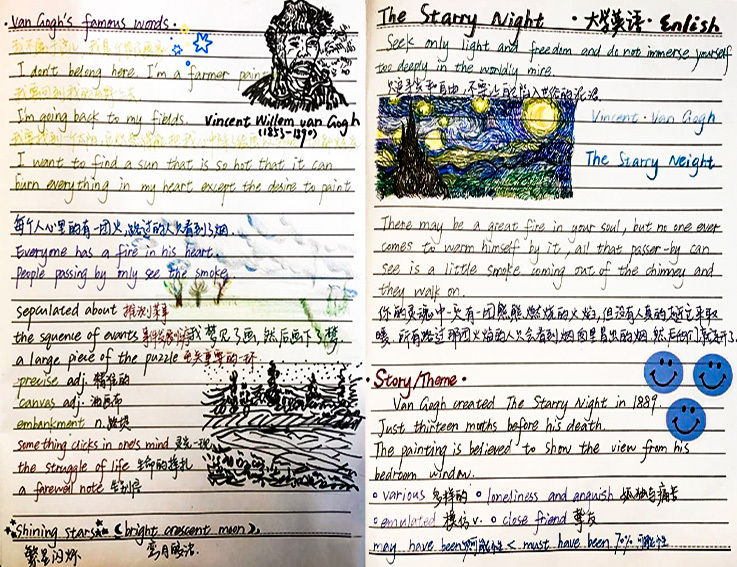 ·Van Gogh's famous words·
I don't belong here. I'm a farmer paint
I'm going back to my fiblds.
Vincent Willem van Gogh
(1853-1890)
I want to find a sun that is so hot that it can
burn everything in my heart except the desire to paint
每个人心里的有一团火,路过的人只看到了烟.
Everyone has a fire in his heart.
people passing by only see the smoke.
sepculated about 推测某事
the squence of evants 我梦见了画,然后画下了梦.
a large piece of the puzzle
precise adj. 精准的
canvas adj. 油画布
embankment n.
something clicks in one's mind 灵光一现
the struggle of life 生命的挣扎
a farewell note 告别信
Shining stars (bright crescent moon),
繁星闪烁
The Starry Night ·大学英语· Enlish
Seek only light and freedom and do not immerse yourself
too deeply in the worldly mire.
Vincent·Van Gogh
The Starry Neight
There may be a great fire in your soul, but no one ever
comes to warm himself by it, all that passer-by can
see is a little smoke coming out of the chimney and
they walk on.
你的灵魂中一次有一团熊熊燃烧的火焰,但没有人真的
暖.所有路过那团火焰的人只会看到烟囱里冒出的烟.然后
Story/Theme·
Van Gogh created The Starry Night in 1889.
Just thirteen moths before his death.
The painting is believed to show the view from his
bedroom window.
·various 多样的 ·loneliness and anguish 孤独与痛苦
·emulated 模仿 v. ·close friend 挚友
may have been 可能性 < must have been 70% 可能性